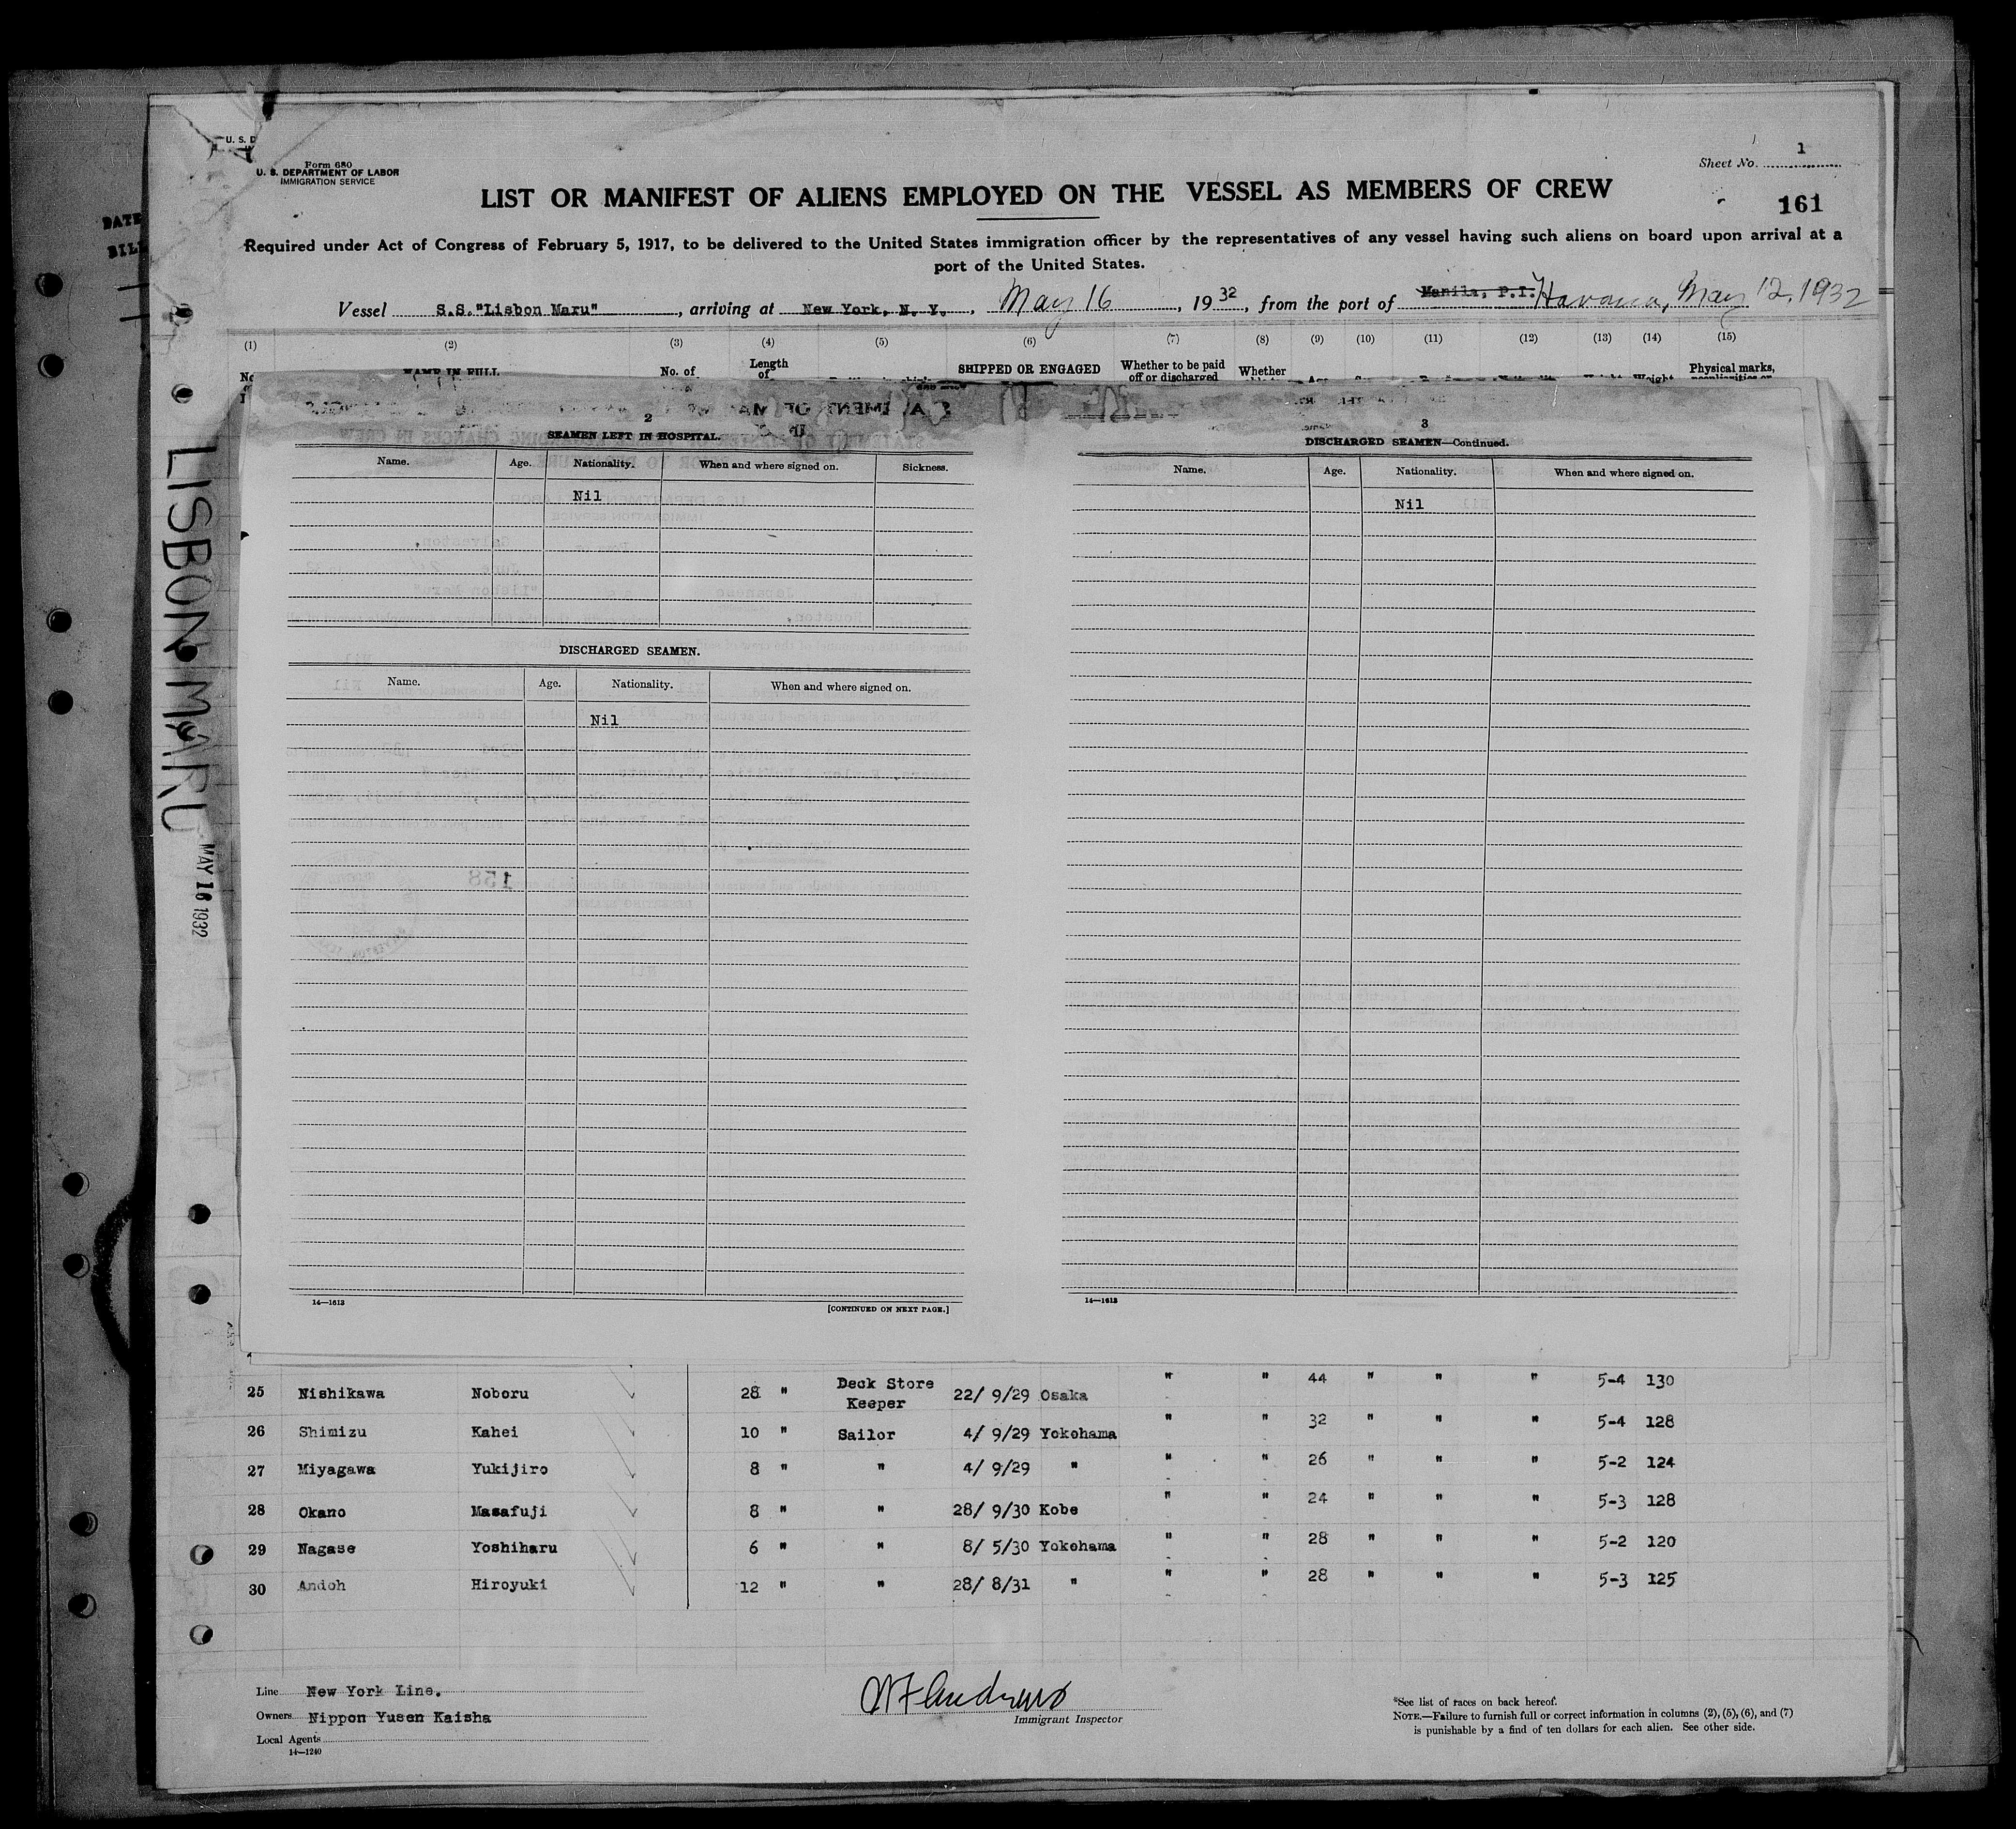 U. S. D
Form 680
U. S. DEPARTMENT OF LABOR
IMMIGRATION SERVICE
Sheet No. 1
LIST OR MANIFEST OF ALIENS EMPLOYED ON THE VESSEL AS MEMBERS OF CREW
161
DATE
BILL
Required under Act of Congress of February 5, 1917, to be delivered to the United States immigration officer by the representatives of any vessel having such aliens on board upon arrival at a
port of the United States.
Vessel S.S."Lisbon Maru", arriving at New York, N. Y., May 16, 1932, from the port of Manila, P.I. Havana, May 12, 1932
(1) (2) (3) (4) (5) (6) (7) (8) (9) (10) (11) (12) (13) (14) (15)
No. of Length of SHIPPED OR ENGAGED Whether to be paid off or discharged Whether Weight Physical marks,
LISBON MARU
MAY 16 1932
2
SEAMEN LEFT IN HOSPITAL.
Name. Age. Nationality. When and where signed on. Sickness.
Nil
DISCHARGED SEAMEN.
Name. Age. Nationality. When and where signed on.
Nil
158
14—1613 [CONTINUED ON NEXT PAGE.]
3
DISCHARGED SEAMEN—Continued.
Name. Age. Nationality. When and where signed on.
Nil
14—1613
25 Nishikawa Noboru 28 " Deck Store Keeper 22/ 9/29 Osaka " " 44 " " " 5-4 130
26 Shimizu Kahei 10 " Sailor 4/ 9/29 Yokohama " " 32 " " " 5-4 128
27 Miyagawa Yukijiro 8 " " 4/ 9/29 " " " 26 " " " 5-2 124
28 Okano Masafuji 8 " " 28/ 9/30 Kobe " " 24 " " " 5-3 128
29 Nagase Yoshiharu 6 " " 8/ 5/30 Yokohama " " 28 " " " 5-2 120
30 Andoh Hiroyuki 12 " " 28/ 8/31 " " " 28 " " " 5-3 125
Line New York Line.
Owners Nippon Yusen Kaisha
Local Agents
14—1240
Andrews
Immigrant Inspector
*See list of races on back hereof.
NOTE.—Failure to furnish full or correct information in columns (2), (5), (6), and (7)
is punishable by a find of ten dollars for each alien. See other side.